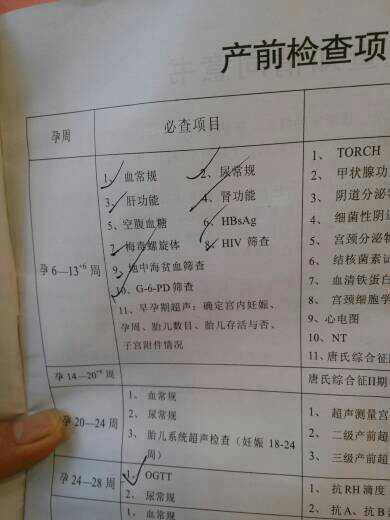 产前检查项
孕周
必查项目
孕 6—13⁺⁶ 周
1、血常规 2、尿常规
3、肝功能 4、肾功能
5、空腹血糖 6、HBsAg
7、梅毒螺旋体 8、HIV 筛查
9、地中海贫血筛查
10、G-6-PD 筛查
11、早孕期超声：确定宫内妊娠、
孕周、胎儿数目、胎儿存活与否、
子宫附件情况
1、 TORCH
2、 甲状腺功
3、 阴道分泌物
4、 细菌性阴
5、 宫颈分泌物
6、 结核菌素试
7、 血清铁蛋白
8、 宫颈细胞学
9、心电图
10、NT
11、唐氏综合征
孕 14—20⁺⁶ 周
唐氏综合征II期
孕20—24 周
1、 血常规
2、 尿常规
3、 胎儿系统超声检查（妊娠 18-24
周）
1、 超声测量宫
2、 二级产前超
3、 三级产前超
孕 24—28 周
1、 OGTT
2、 尿常规
1、 抗 RH 滴度
2、 抗 A、抗 B
1、 血常规